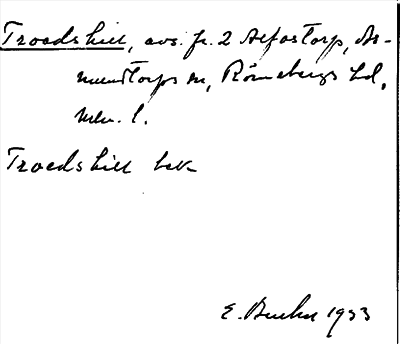 Troedshill, avs. fr. 2 Alfastorp, As-
mundtorps sn, Rönnebergs hd,
Mlm. l.
Troedshill bek
E. Buhr 1933